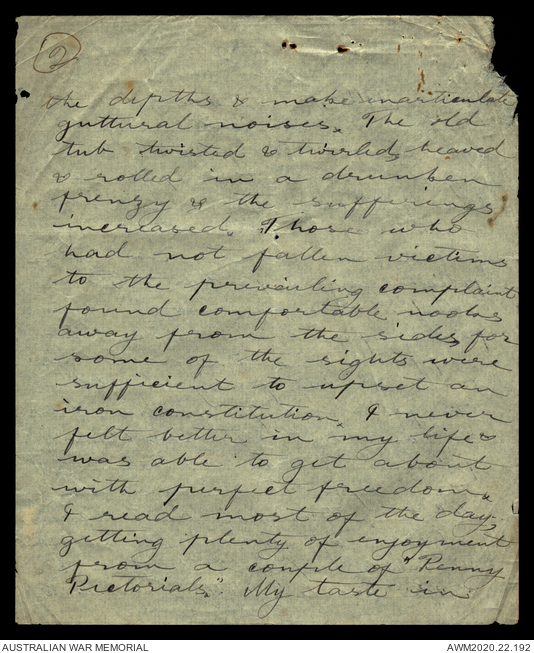 2
the depths & make inarticulate
guttural noises. The old
tub twisted & twirled, heaved
& rolled in a drunken
frenzy & the sufferings
increased. Those who
had not fallen victims
to the prevailing complaint
found comfortable nooks
away from the sides, for
some of the sights were
sufficient to upset an
iron constitution. I never
felt better in my life &
was able to get about
with perfect freedom.
I read most of the day,
getting plenty of enjoyment
from a couple of "Penny
Pictorials". My taste in
AUSTRALIAN WAR MEMORIAL
AWM2020.22.192